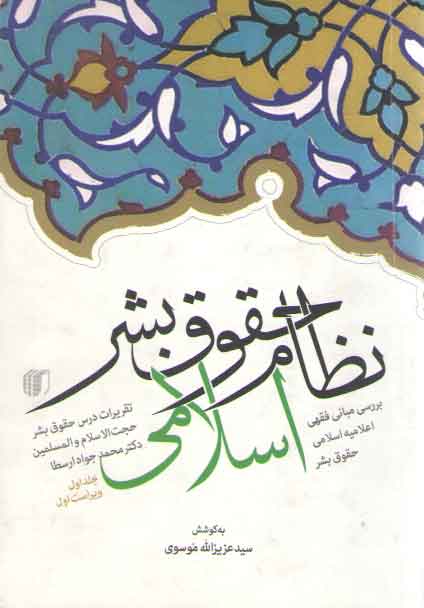 نظام حقوق بشر
اسلامی
بررسی مبانی فقهی
اعلامیه اسلامی
حقوق بشر
تقریرات درس حقوق بشر
حجت‌الاسلام والمسلمین
دکتر محمد جواد ارسطا
جلد اول
ویراست اول
به کوشش
سید عزیزالله موسوی